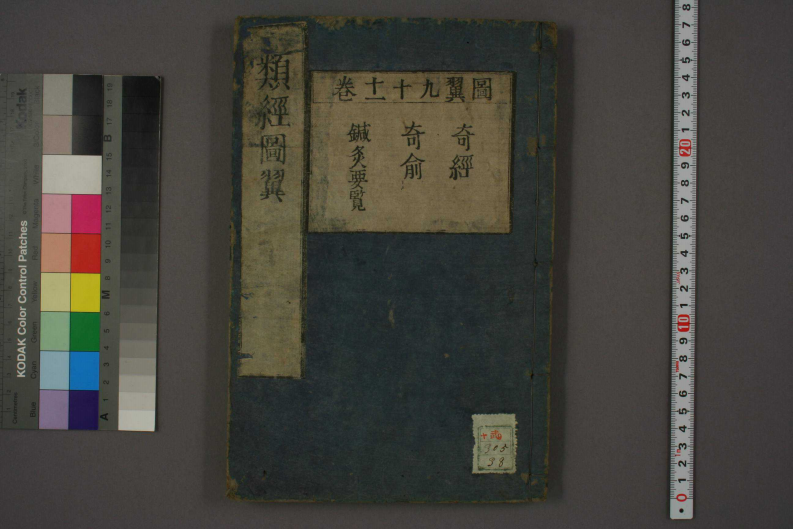 類經圖翼
圖翼九十十一卷
奇經
奇俞
鍼灸要覽
305
38
Kodak
KODAK Color Control Patches
Blue
Cyan
Green
Yellow
Red
Magenta
White
A 1 2 3 4 5 6 M 8 9 10 11 12 13 14 15 B 17 18 19
0 1 2 3 4 5 6 7 8 9 10 1 2 3 4 5 6 7 8 9 20 1 2 3 4 5 6 7 8